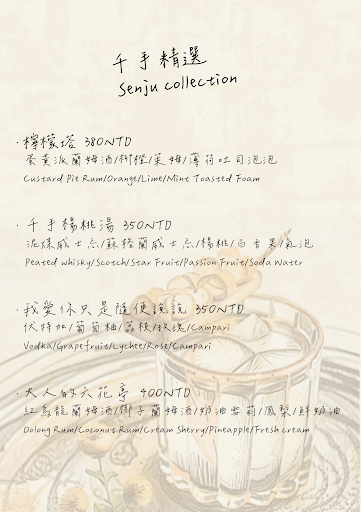 千手精選
Senju collection
·檸檬塔 380NTD
蛋黃派蘭姆酒/柳橙/萊姆/薄荷吐司泡泡
Custard Pie Rum/Orange/Lime/Mint Toasted Foam
·千手楊桃湯 350NTD
泥煤威士忌/蘇格蘭威士忌/楊桃/百香果/氣泡
Peated whisky/Scotch/Star Fruit/Passion Fruit/Soda Water
·我愛你只是隨便說說 350NTD
伏特加/葡萄柚/荔枝/玫瑰/Campari
Vodka/Grapefruit/Lychee/Rose/Campari
·大人的六花亭 400NTD
紅烏龍蘭姆酒/椰子蘭姆酒/奶油雪莉/鳳梨/鮮奶油
Oolong Rum/Coconut Rum/Cream Sherry/Pineapple/Fresh cream